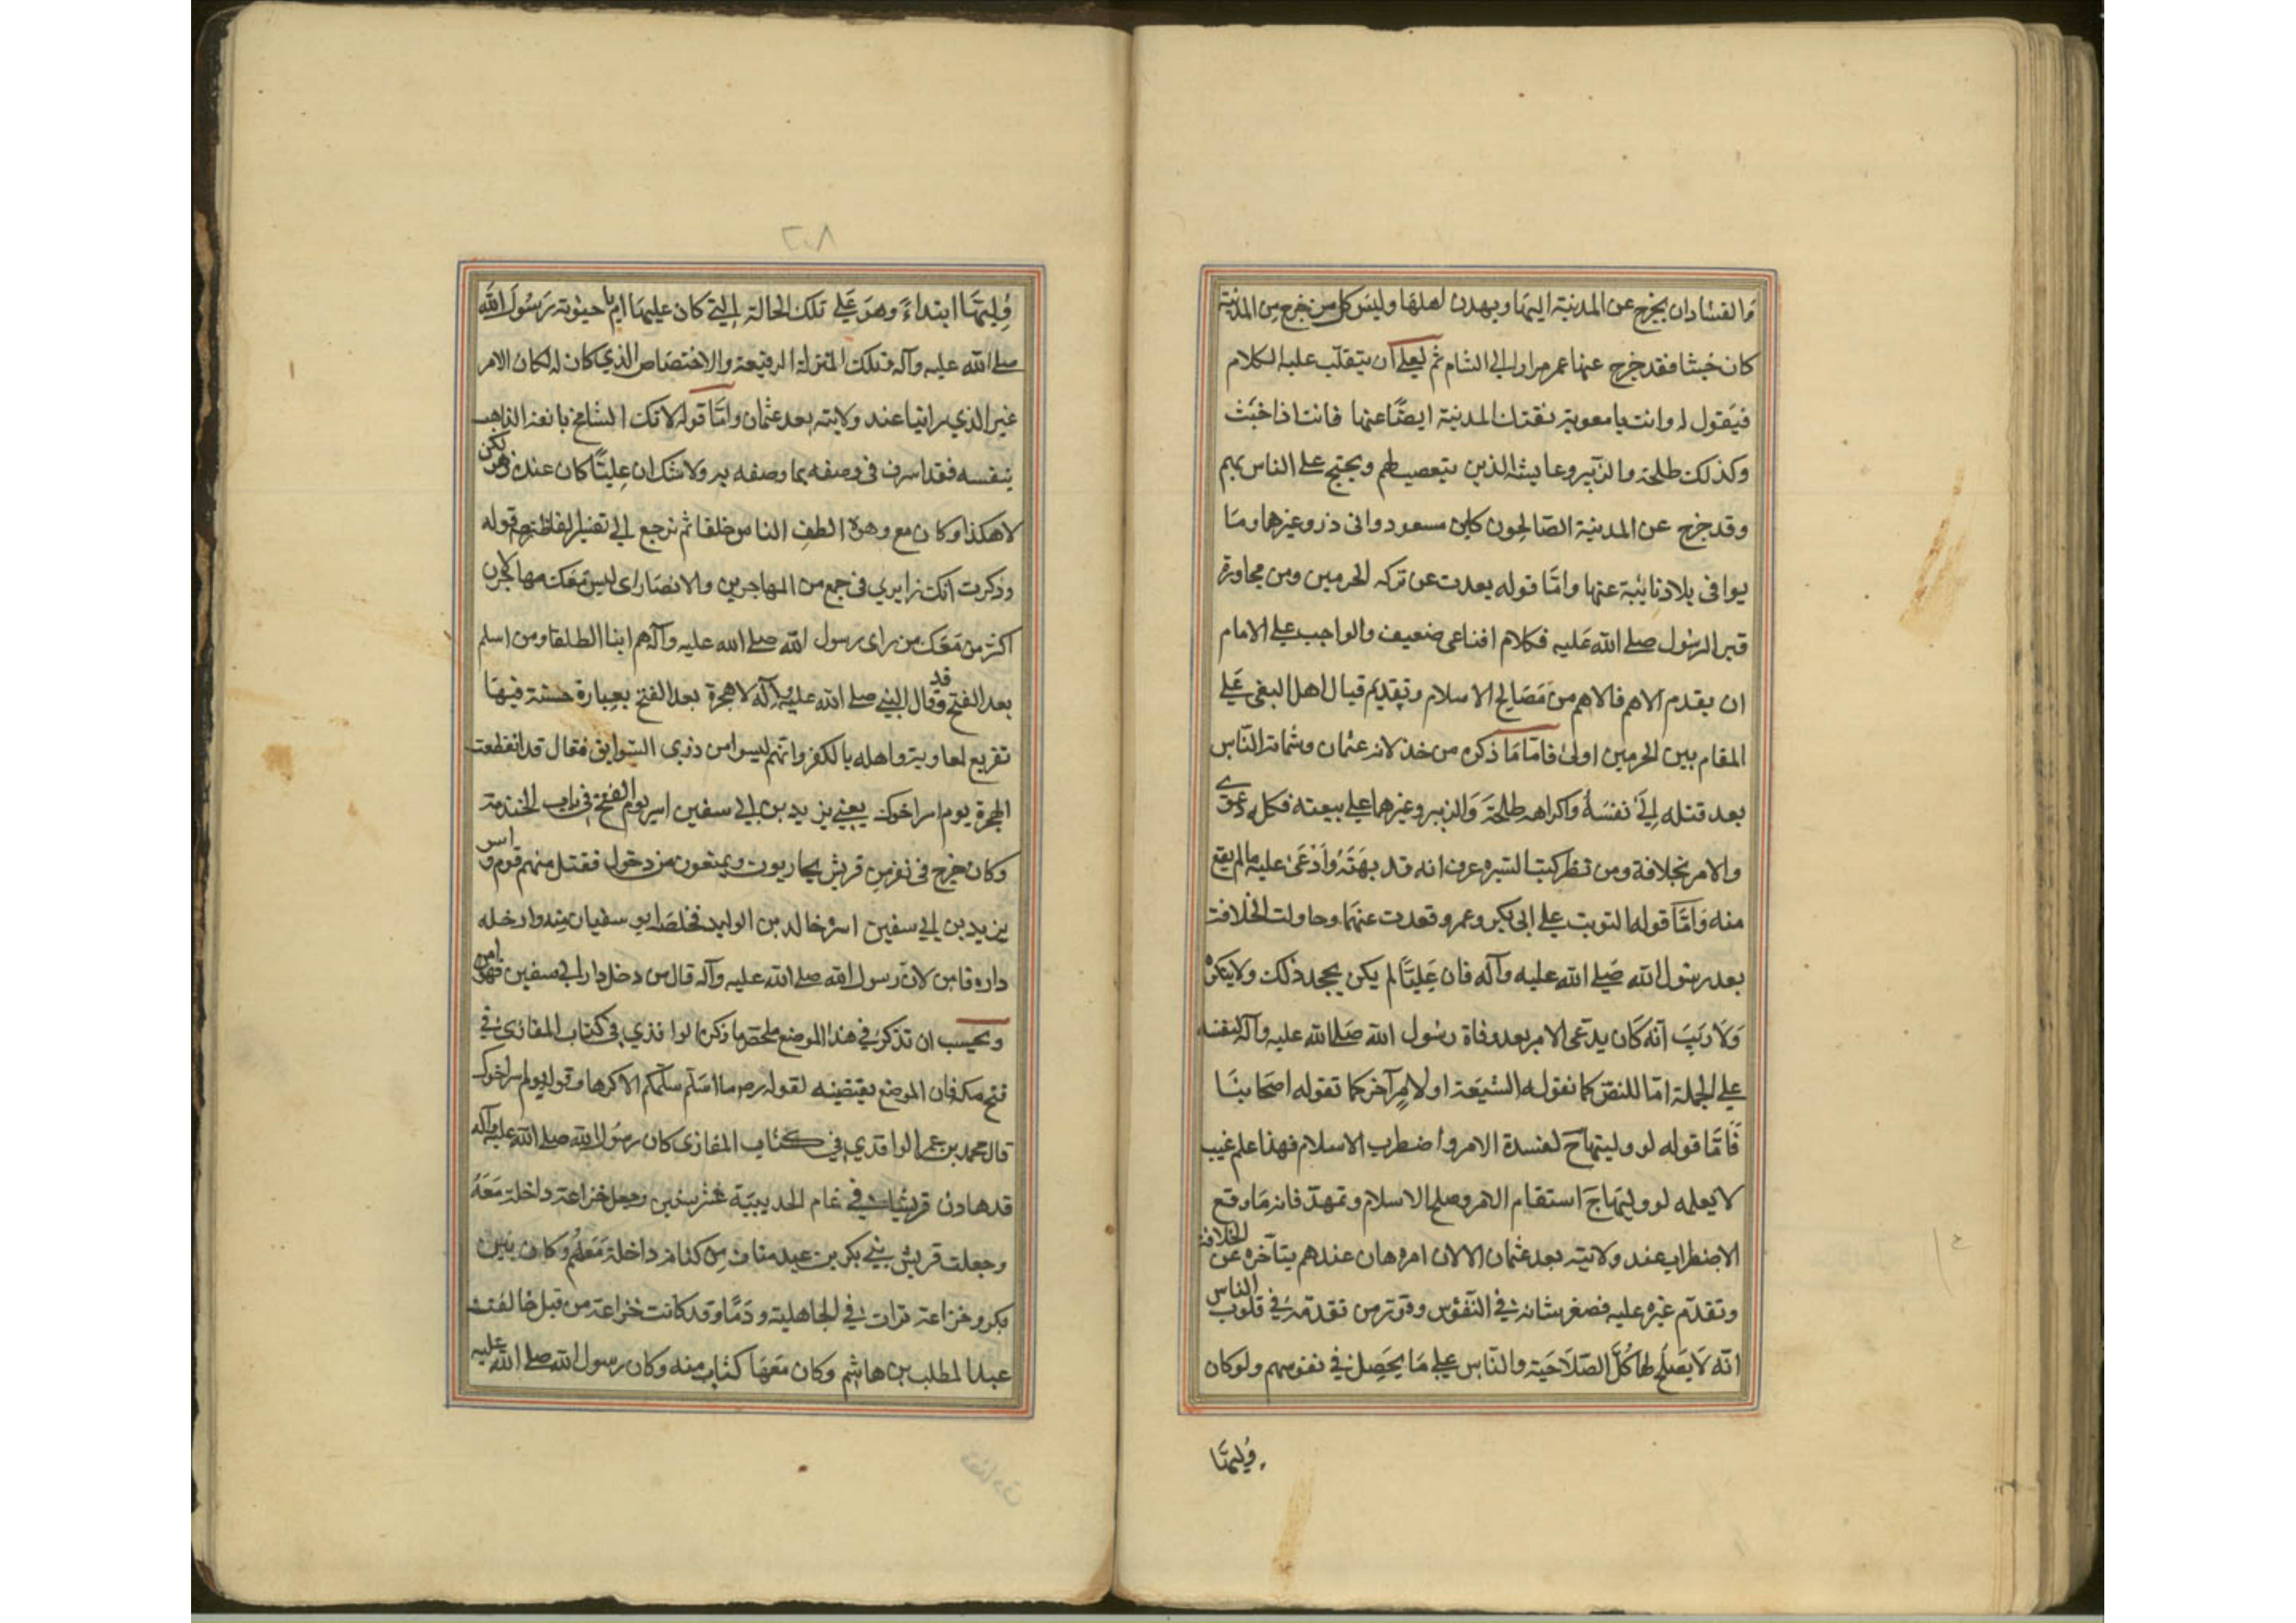 والفساد ان يخرج عن المدينة اليها ويهدن اهلها وليس كل من خرج من المدينة
كان خبثا فقد خرج عنها عمر مرارا الى الشام ثم لعلي ان يتقلب عليه الكلام
فيقول له وانت يا معوية نفتك المدينة ايضا عنها فانت اذا خبث
وكذلك طلحة والزبير وعايشة الذين يتعصب لهم ويحتج على الناس بهم
وقد خرج عن المدينة الصالحون كابن مسعود وابى ذر وغيرهما وما
توا فى بلاد نائية عنها واما قوله بعدت عن تركه الحرمين ومن مجاورة
قبر الرسول صلى الله عليه فكلام اقناعى ضعيف والواجب على الامام
ان يقدم الاهم فالاهم من مصالح الاسلام وتقديم قتال اهل البغى على
المقام بين الحرمين اولى فاما ما ذكره من خذلانه عثمان وشماته الناس
بعد قتله الى نفسه واكراهه طلحة والزبير وغيرهما على بيعته فكله دعوى
والامر بخلافة ومن نظر كتب السيره عرف انه قد بهته وادعى عليه ما لم يقع
منه واما قوله التويت على ابى بكر وعمر وقعدت عنهما وحاولت الخلافت
بعد رسول الله صلى الله عليه وآله فان عليا لم يكن يجحد ذلك ولا ينكره
ولا ريب انه كان يدعى الامر بعد وفاة رسول الله صلى الله عليه وآله لنفسه
على الجملة اما للنص كما نقوله الشيعة او لامر آخر كما تقوله اصحابنا
فاما قوله لو وليتها ح لفسدة الامر واضطرب الاسلام فهذا علم غيب
لا يعلمه لو وليتها ح استقام الامر وصلح الاسلام وتمهد فانه ما وقع
الاضطراب عند ولايته بعد عثمان الا لان امره هان عندهم بتآخره عن الخلافة
وتقدم غيره عليه فصغر شانه في النفوس وقرر من تقدمه في قلوب الناس
انه لا يصلح لها كل الصلاحية والناس على ما يحصل في نفوسهم ولو كان
وليها
٢٠٨
وليها ابتداء وهو على تلك الحالة التي كان عليها ايام حيوته رسول الله
صلى الله عليه وآله وتلك المنزلة الرفيعة والاختصاص الذي كان له لكان الامر
غير الذي راتيا عند ولايته بعد عثمان واما قوله لانك الشامخ بانفه الذاهب
بنفسه فقد اسرف فى وصفه بما وصفه به ولا شك ان عليا كان عنده زهو لكن
لا هكذا وكان مع زهوه الطف الناس خلقا ثم نرجع الى تفسير الفاظه قوله
وذكرت انك زايري فى جمع من المهاجرين والانصار اى ليس معك مهاجر لان
اكثر من معك من راى رسول الله صلى الله عليه وآله هم ابنا الطلقا ومن اسلم
بعد الفتح وقد قال النبي صلى الله عليه وآله لا هجرة بعد الفتح بعبارة حسنة فيها
تقريع لمعاوية واهله بالكفر وانهم ليسوا من ذوى السوابق فقال قد انقطعت
الهجرة يوم اسر اخوك يعني يزيد بن ابي سفين اسر يوم الفتح في باب الخندمة
وكان خرج فى نفر من قريش يحاربون ويمنعون من دخول فقتل منهم قوم واسر
يزيد بن ابي سفين اسره خالد بن الوليد فخلصه ابو سفيان منه وادخله
داره فامن لان رسول الله صلى الله عليه وآله قال من دخل دار ابي سفين فهو امن
ويحسب ان تذكر في هذا الموضع ملخص ما ذكره الواقدي في كتاب المغازى في
فتح مكه فان الموضع يقتضيه لقوله ما اسلم مسلمكم الا كرها وقوله يوم اسر اخوك
قال محمد بن عمر الواقدي في كتاب المغازى كان رسول الله صلى الله عليه وآله
قد هادن قريشا في عام الحديبية عشر سنين وجعل خزاعة داخلة معه
وجعلت قريش بني بكر بن عبد مناف من كنانه داخلة معهم وكان بين بنى
بكر وخزاعة ترات في الجاهلية ودما وقد كانت خزاعة من قبل خالفت
عبد المطلب بن هاشم وكان معها كتاب منه وكان رسول الله صلى الله عليه